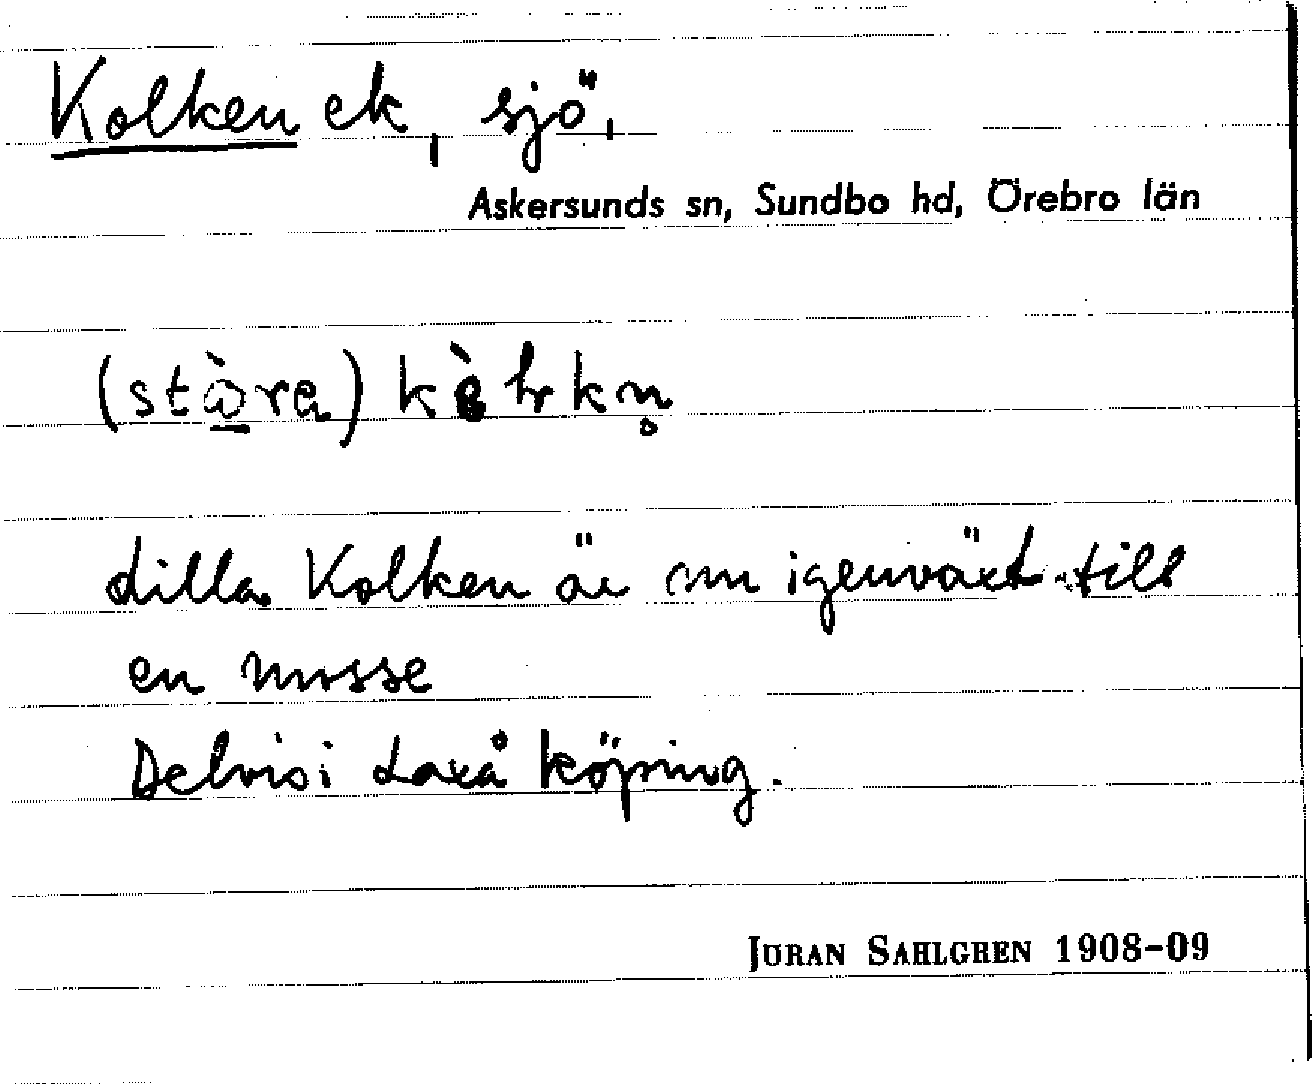 Kolken ek, sjö,
Askersunds sn, Sundbo hd, Örebro län
(stòra)
Lilla Kolken är nu igenväxt till
en mosse
Delvis i Laxå köping.
JÖRAN SAHLGREN 1908-09